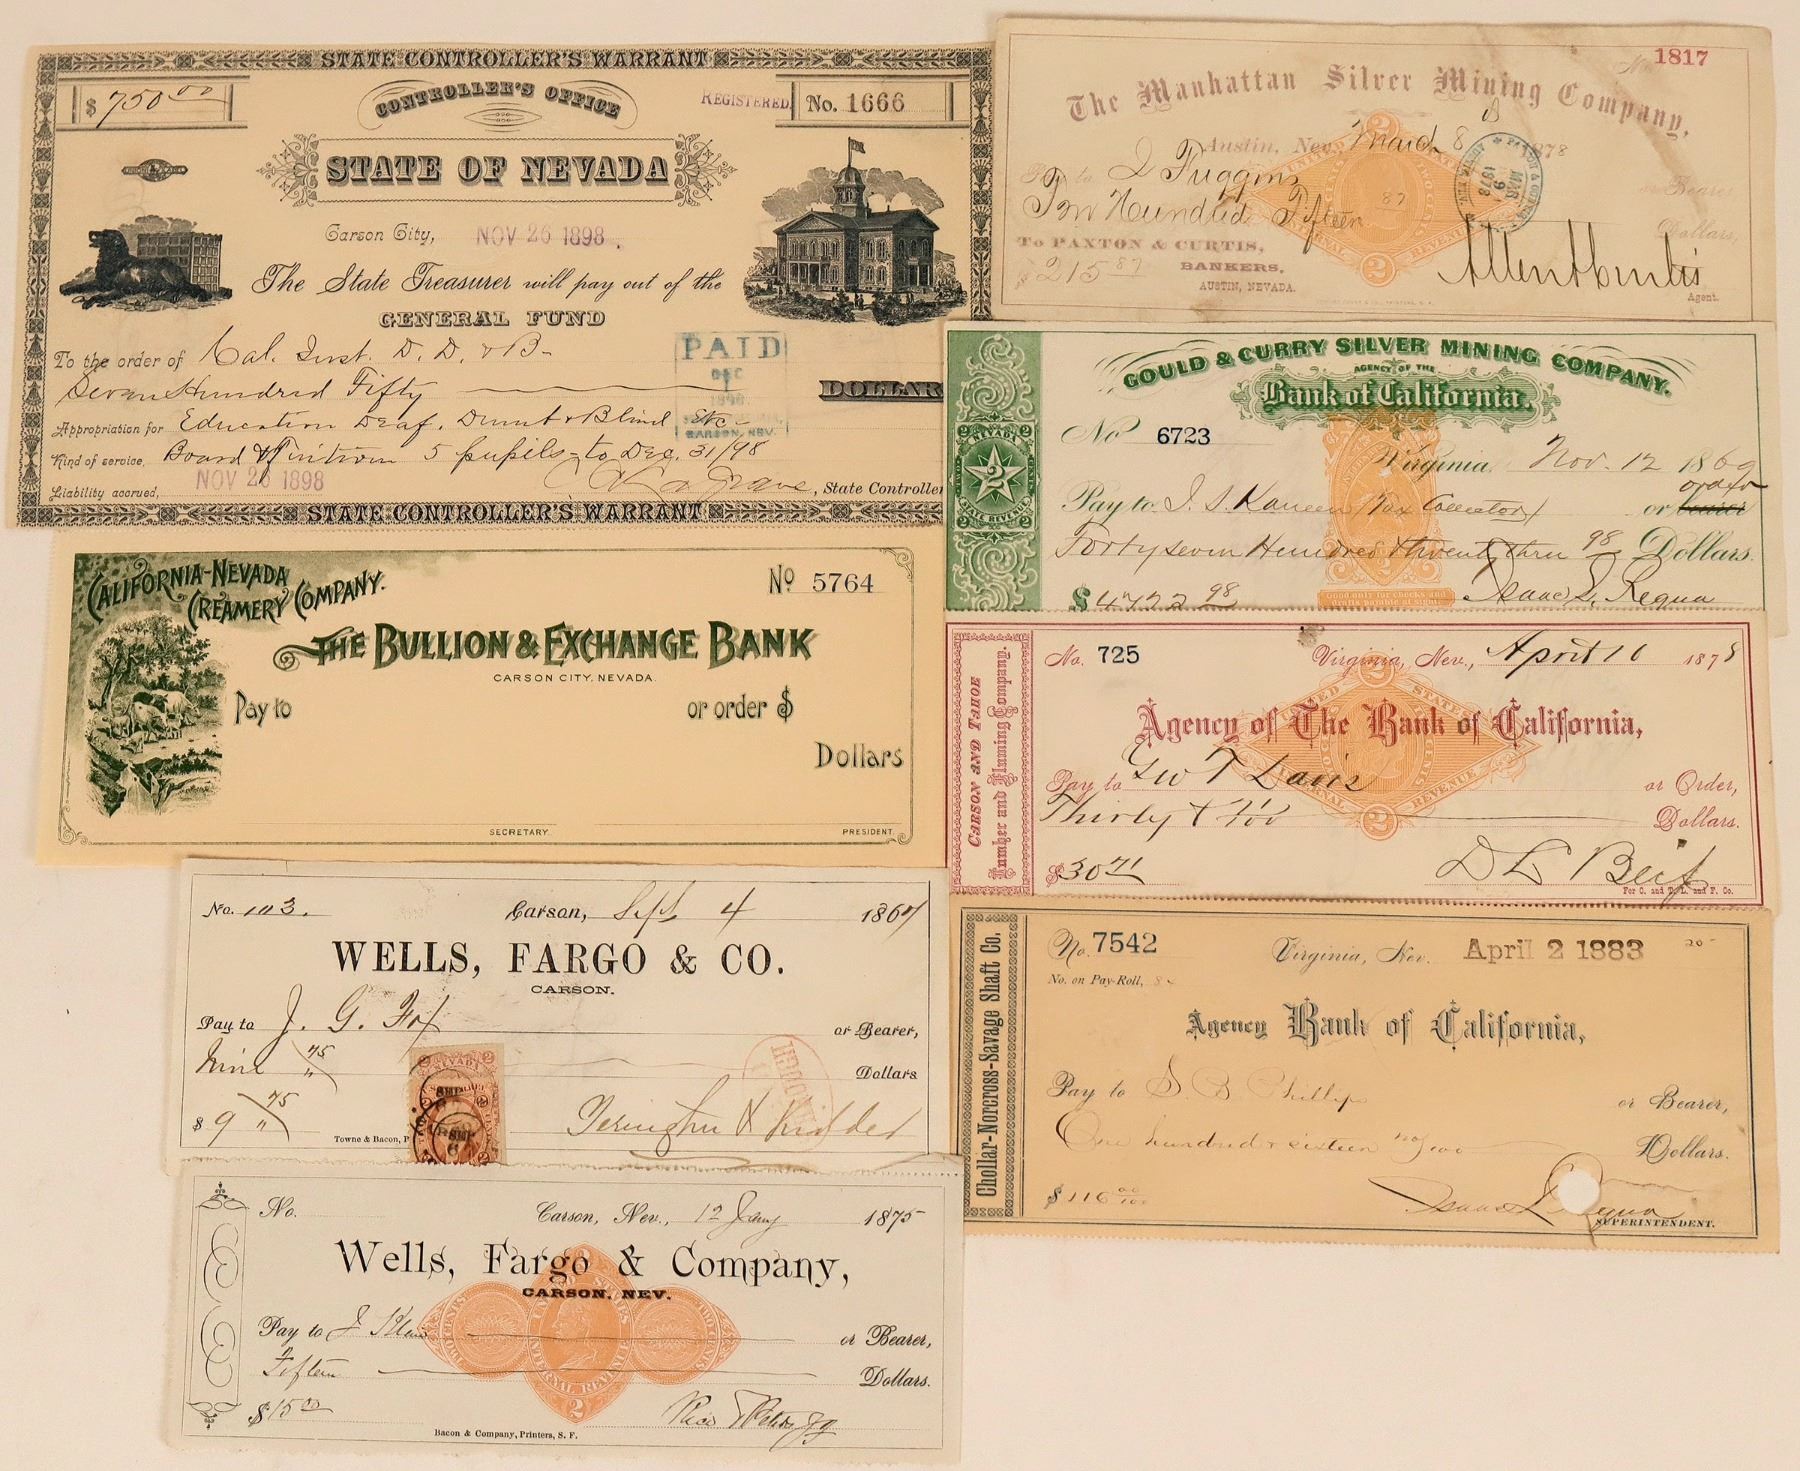 STATE CONTROLLER'S WARRANT
$ 750 00
CONTROLLER'S OFFICE
REGISTERED No. 1666
STATE OF NEVADA
Carson City, NOV 26 1898.
The State Treasurer will pay out of the
GENERAL FUND
To the order of Cal. Inst. D. D. & B-
Seven Hundred Fifty DOLLAR
Appropriation for Education Deaf, Dumb & Blind Etc-
Kind of service, Board & Tuition 5 pupils-to Dec. 31/98
Liability accrued, NOV 26 1898
, State Controller
PAID
DEC
1
1898
CARSON, NEV.
STATE CONTROLLER'S WARRANT
No. 1817
The Manhattan Silver Mining Company,
Austin, Nev. March 8 1878
Pay to J Fuggins or Bearer
Two Hundred Fifteen 87 Dollars,
To PAXTON & CURTIS,
$ 215 87 BANKERS,
AUSTIN, NEVADA.
Allen A Curtis
Agent.
PAXTON & CURTIS
MAR
9
1878
UNITED STATES
INTERNAL REVENUE
2
GOULD & CURRY SILVER MINING COMPANY.
AGENCY OF THE
Bank of California.
No 6723
Virginia, Nov. 12 1869
order
Pay to I. S. Kaneen (Tax Collector) or bearer
Forty seven Hundred & twenty thru 98 Dollars.
$ 4722 98 Isaac L. Requa
Good only for checks and
drafts payable at sight.
NEVADA
2
STATE REVENUE
CALIFORNIA-NEVADA
CREAMERY COMPANY.
No 5764
THE BULLION & EXCHANGE BANK
CARSON CITY, NEVADA.
Pay to or order $
Dollars
SECRETARY. PRESIDENT.
CARSON AND TAHOE
Lumber and Fluming Company.
No. 725 Virginia, Nev., April 16 1878
Agency of The Bank of California,
Pay to Geo T Davis or Order,
Thirty & 71/100 Dollars.
$30 71
For C. and T. L. and F. Co.
UNITED STATES
INTERNAL REVENUE
2
No. 103. Carson, Sept 4 1867
WELLS, FARGO & CO.
CARSON.
Pay to J. G. Fox or Bearer,
Nine 75 Dollars
$ 9 75
Towne & Bacon, P
NEVADA
Chollar-Norcross-Savage Shaft Co.
No. 7542 Virginia, Nev. April 2 1883 20-
No. on Pay-Roll, 84
Agency Bank of California,
Pay to S. B. Phillips or Bearer,
One hundred & sixteen no/100 Dollars.
$ 116 00/100
Isaac L. Requa
SUPERINTENDENT.
No. Carson, Nev., 12 Jany 1875
Wells, Fargo & Company,
CARSON, NEV.
Pay to J Klein or Bearer,
Fifteen Dollars.
$15 00
Bacon & Company, Printers, S. F.
UNITED STATES
INTERNAL REVENUE
TWO CENTS
2